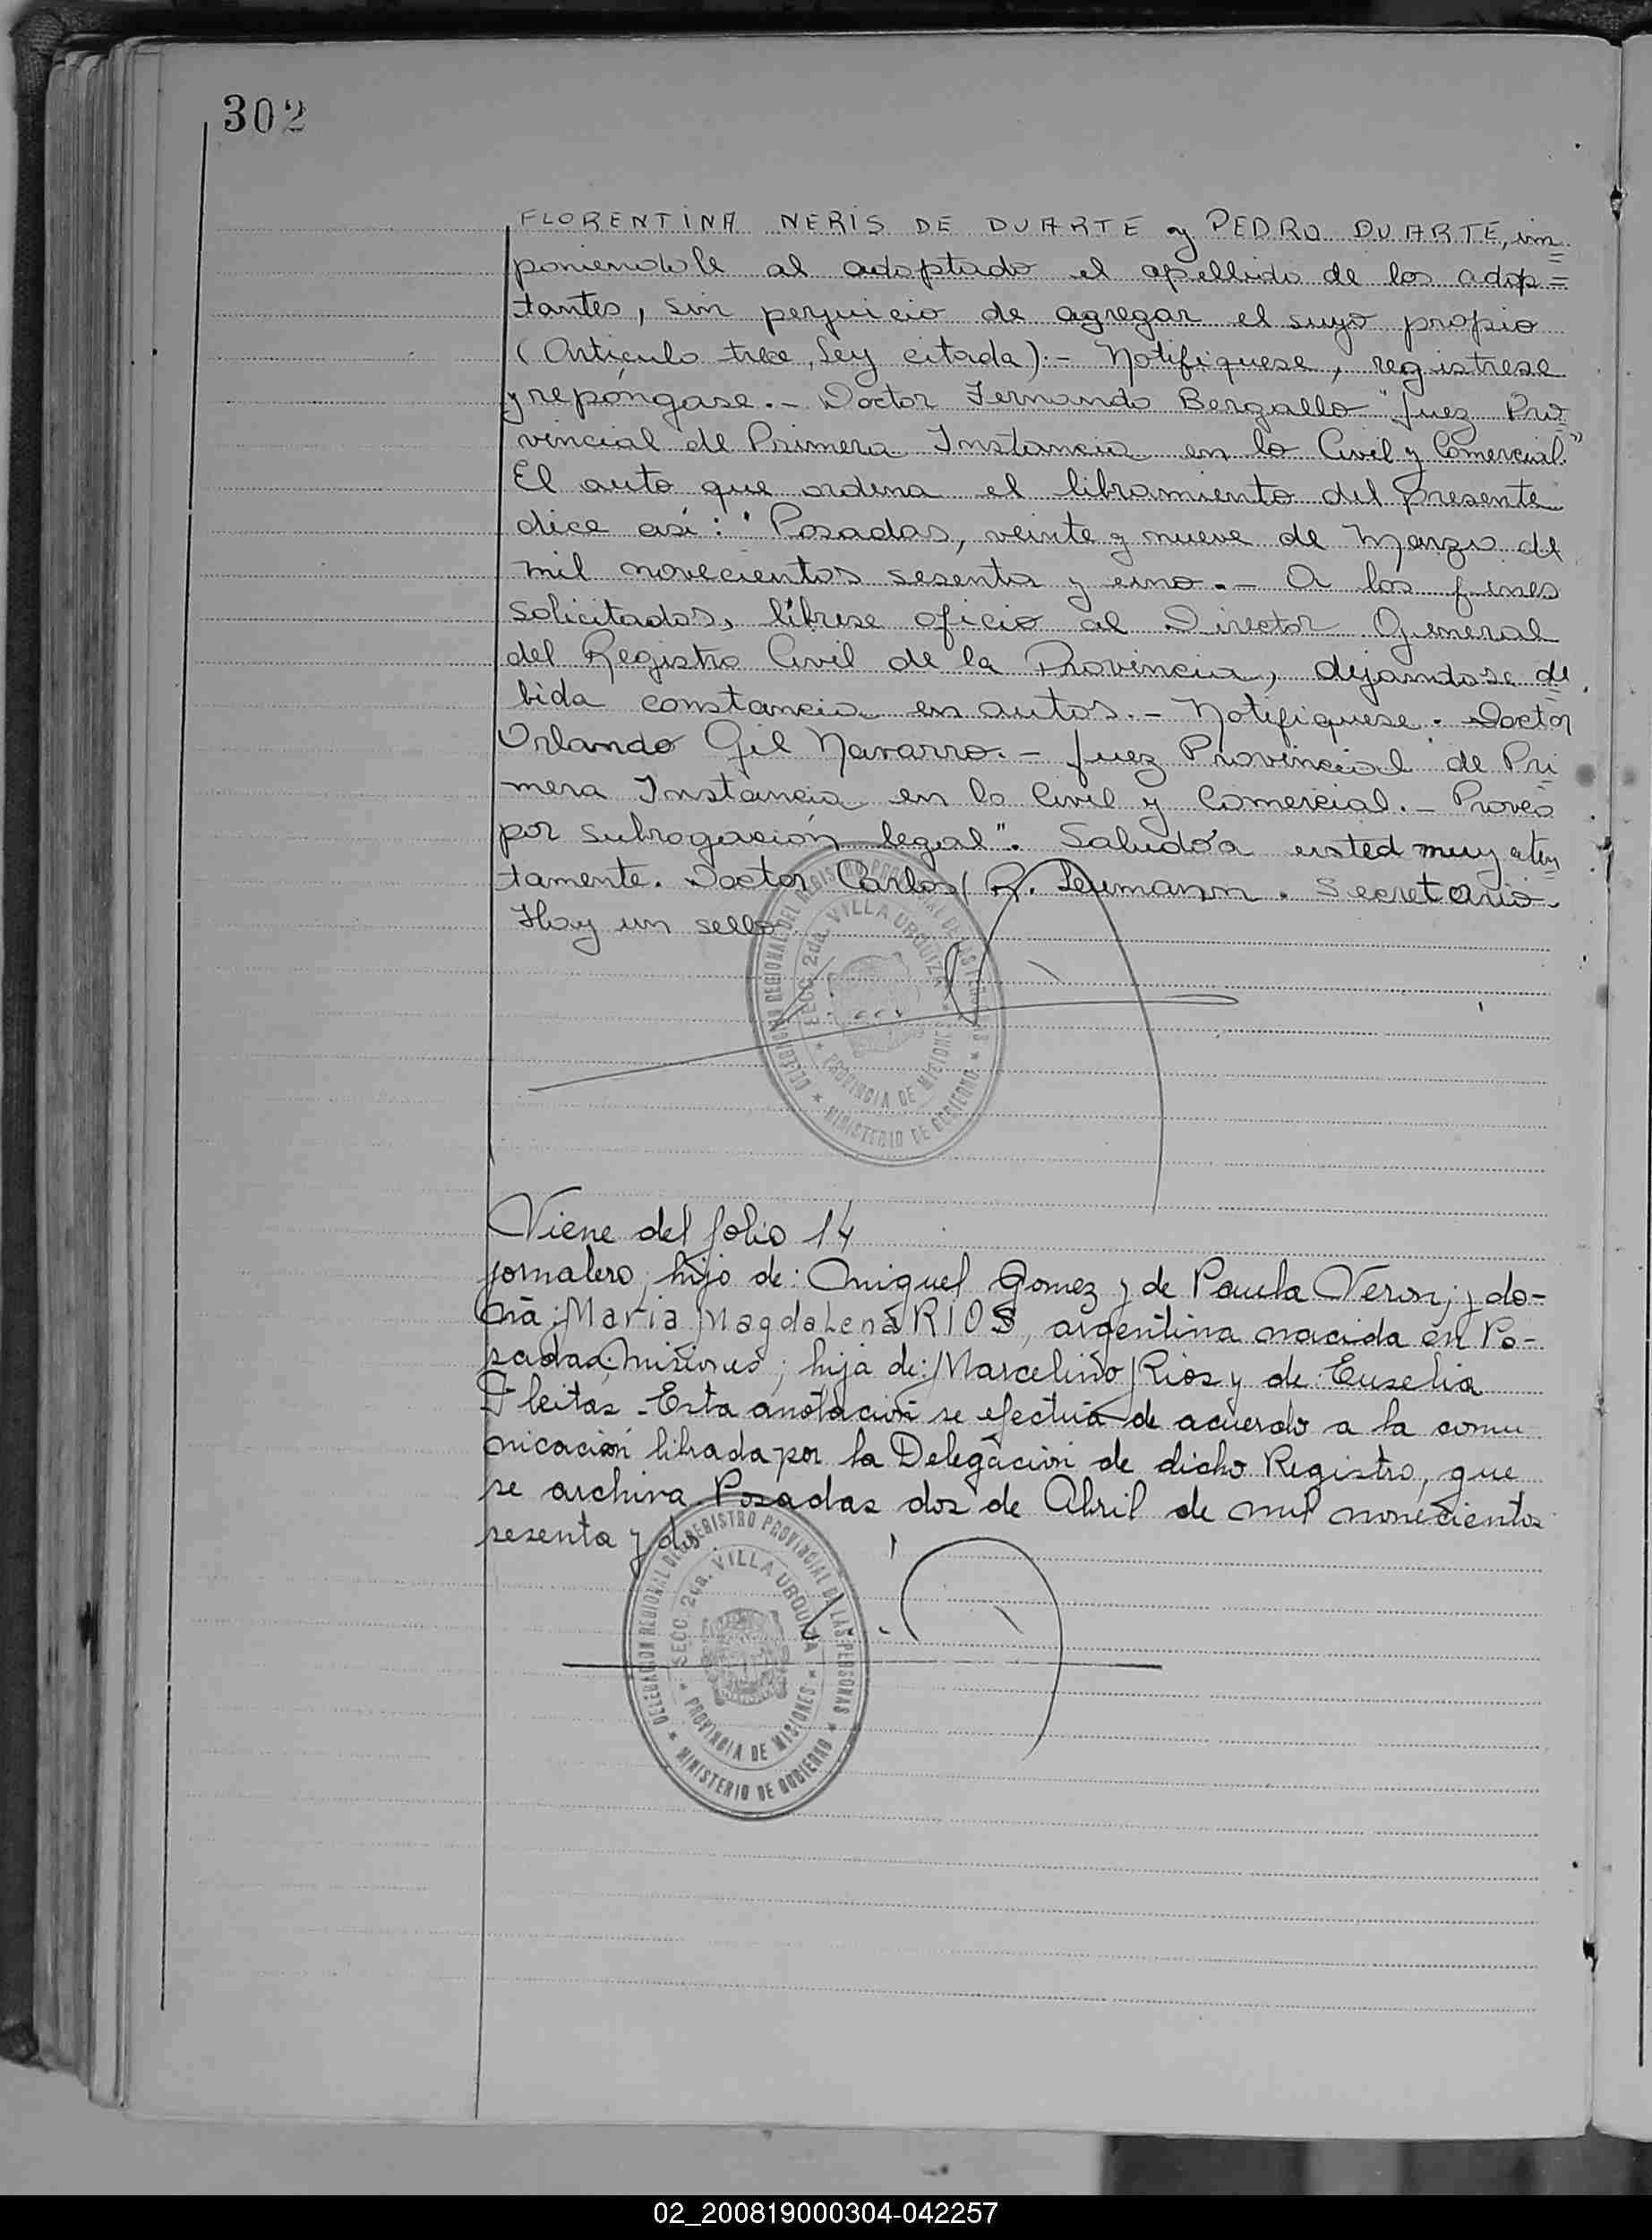 302
FLORENTINA NERIS DE DUARTE y PEDRO DUARTE, im=
poniendole al adoptado el apellido de los adop=
tantes, sin perjuicio de agregar el suyo propio
(Artículo trece, Ley citada).- Notifiquese, registrese
y repóngase.- Doctor Fernando Bergallo "Juez Pro=
vincial de Primera Instancia en lo Civil y Comercial."
El auto que ordena el libramiento del presente
dice así: "Posadas, veinte y nueve de Marzo de
mil novecientos sesenta y uno.- A los fines
solicitados, líbrese oficio al Director General
del Registro Civil de la Provincia, dejandose de=
bida constancia en autos.- Notifiquese. Doctor
Orlando Gil Navarro.- Juez Provincial de Pri=
mera Instancia en lo Civil y Comercial.- Proveo
por subrogación legal". Saludo a usted muy aten=
tamente. Doctor Carlos R. Leumann. Secretario.
Hay un sello
DELEGACION REGIONAL DEL REGISTRO PROVINCIAL DE LAS PERSONAS
SECC. 2da. VILLA URQUIZA
* PROVINCIA DE MISIONES *
* MINISTERIO DE GOBIERNO *
Viene del folio 14
jornalero, hijo de: Miguel Gomez y de Paula Veron; y do-
ña: Maria Magdalena RIOS, argentina nacida en Po-
sadas, Misiones; hija de: Marcelino Rios y de Euselia
Fleitas - Esta anotación se efectúa de acuerdo a la comu
nicación librada por la Delegación de dicho Registro, que
se archiva. Posadas dos de Abril de mil novecientos
sesenta y dos.
DELEGACION REGIONAL DEL REGISTRO PROVINCIAL DE LAS PERSONAS
SECC. 2da. VILLA URQUIZA
* PROVINCIA DE MISIONES *
* MINISTERIO DE GOBIERNO *
02_200819000304-042257